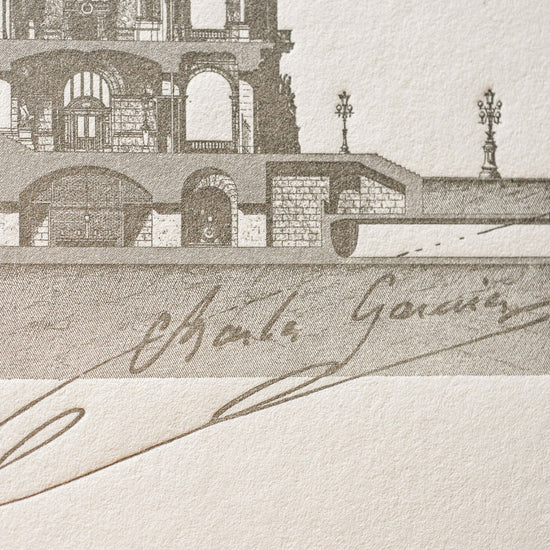 Charles Garnier